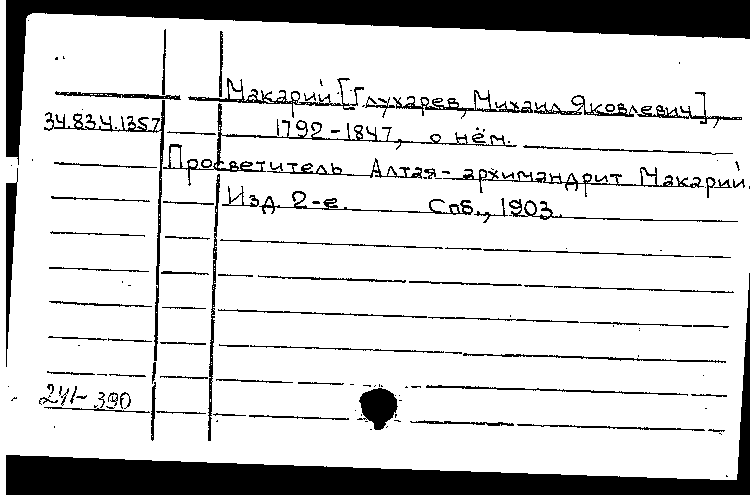 Макарий [Глухарев, Михаил Яковлевич],
34.83.4.1357 1792-1847, о нём.
Просветитель Алтая - архимандрит Макарий.
Изд. 2-е. Спб., 1903.
241-390